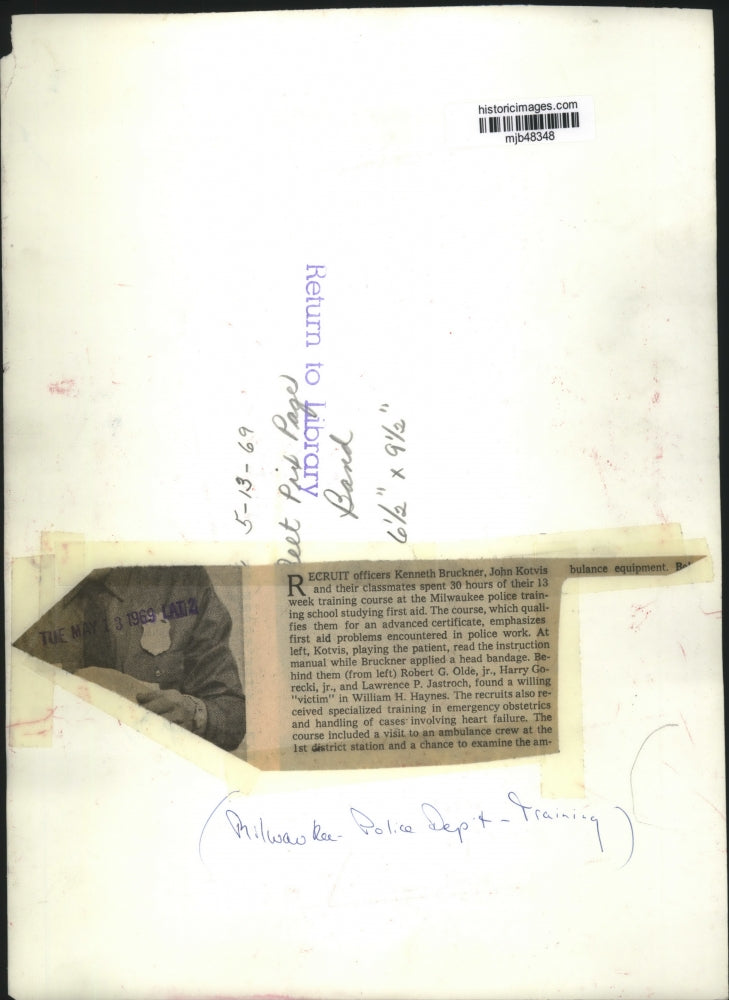 historicimages.com
mjb48348
Return to Library
5-13-69
Pix Page
Band
6½" x 9½"
TUE MAY 13 1969 LATE
RECRUIT officers Kenneth Bruckner, John Kotvis
and their classmates spent 30 hours of their 13
week training course at the Milwaukee police train-
ing school studying first aid. The course, which quali-
fies them for an advanced certificate, emphasizes
first aid problems encountered in police work. At
left, Kotvis, playing the patient, read the instruction
manual while Bruckner applied a head bandage. Be-
hind them (from left) Robert G. Olde, jr., Harry Go-
recki, jr., and Lawrence P. Jastroch, found a willing
"victim" in William H. Haynes. The recruits also re-
ceived specialized training in emergency obstetrics
and handling of cases involving heart failure. The
course included a visit to an ambulance crew at the
1st district station and a chance to examine the am-
bulance equipment.
(Milwaukee - Police Dep't - Training)